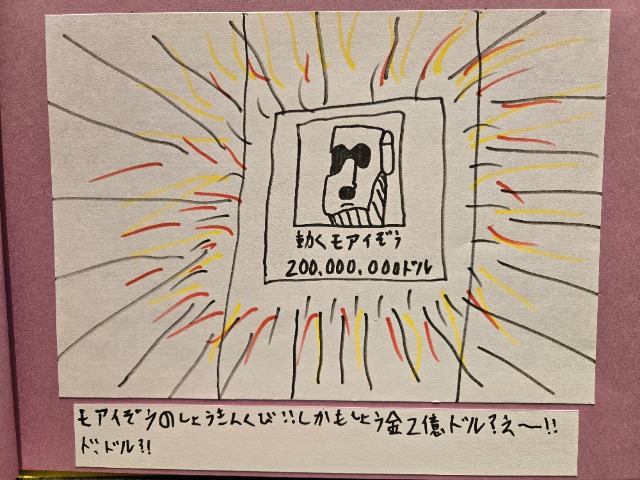 動くモアイぞう
200.000.000ドル
モアイぞうのしょうきんくび!!しかもしょう金2億ドル?え〜!!
ド、ドル?!